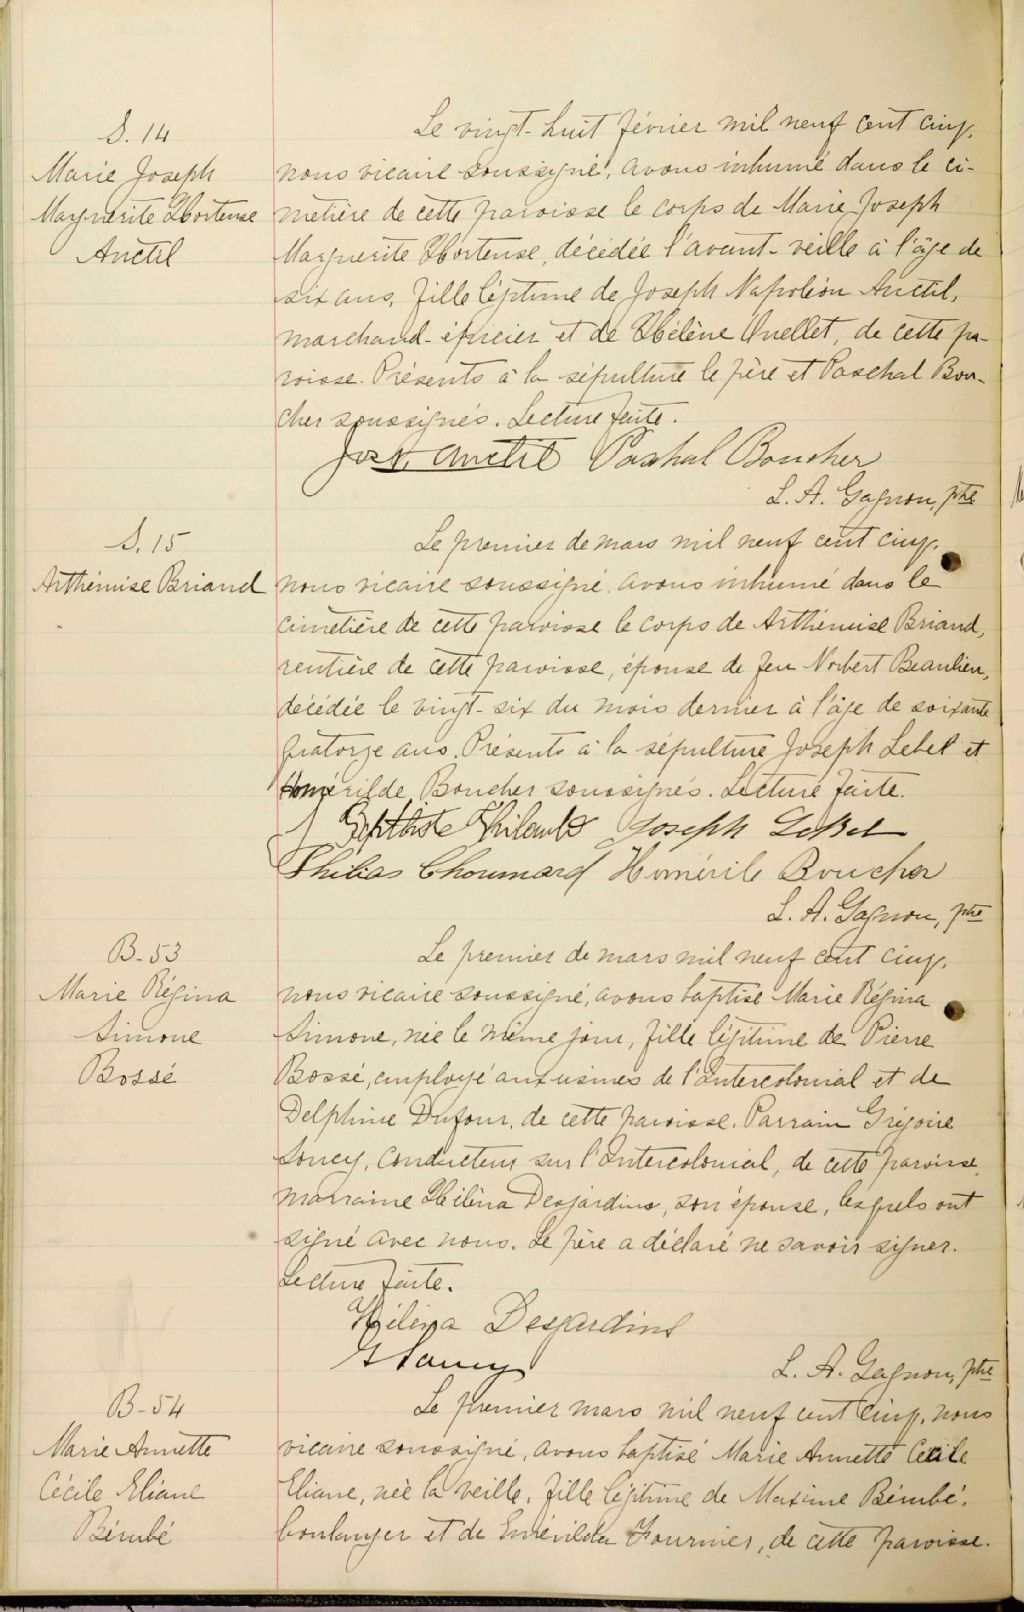 S. 14
Marie Joseph
Marguerite Hortense
Anctil
Le vingt-huit février mil neuf cent cinq,
nous vicaire soussigné, avons inhumé dans le ci-
metière de cette paroisse le corps de Marie Joseph
Marguerite Hortense, décédée l'avant-veille à l'âge de
six ans, fille légitime de Joseph Napoléon Anctil,
marchand-épicier et de Hélène Ouellet, de cette pa-
roisse. Présents à la sépulture le père et Paschal Bou-
cher soussignés. Lecture faite.
Jos. N. Anctil Paschal Boucher
L. A. Gagnon, ptre
S. 15
Arthémise Briand
Le premier de mars mil neuf cent cinq,
nous vicaire soussigné, avons inhumé dans le
cimetière de cette paroisse le corps de Arthémise Briand,
rentière de cette paroisse, épouse de feu Norbert Beaulieu,
décédée le vingt-six du mois dernier à l'âge de soixante
quatorze ans. Présents à la sépulture Joseph Lebel et
Homérilde Boucher soussignés. Lecture faite.
Thibault Joseph LeBel
Philias Chouinard Homérile Boucher
L. A. Gagnon, ptre
B-53
Marie Régina
Simone
Bossé
Le premier de mars mil neuf cent cinq,
nous vicaire soussigné, avons baptisé Marie Régina
Simone, née le même jour, fille légitime de Pierre
Bossé, employé aux usines de l'Intercolonial et de
Delphine Dufour, de cette paroisse. Parrain Grégoire
Soucy, conducteur sur l'Intercolonial, de cette paroisse,
marraine Hélèna Desjardins, son épouse, lesquels ont
signé avec nous. Le père a déclaré ne savoir signer.
Lecture faite.
Hélèna Desjardins
G Soucy
L. A. Gagnon, ptre
B-54
Marie Annette
Cécile Eliane
Bérubé
Le premier mars mil neuf cent cinq, nous
vicaire soussigné, avons baptisé Marie Annette Cécile
Eliane, née la veille, fille légitime de Maxime Bérubé,
boulanger et de Fournier, de cette paroisse.